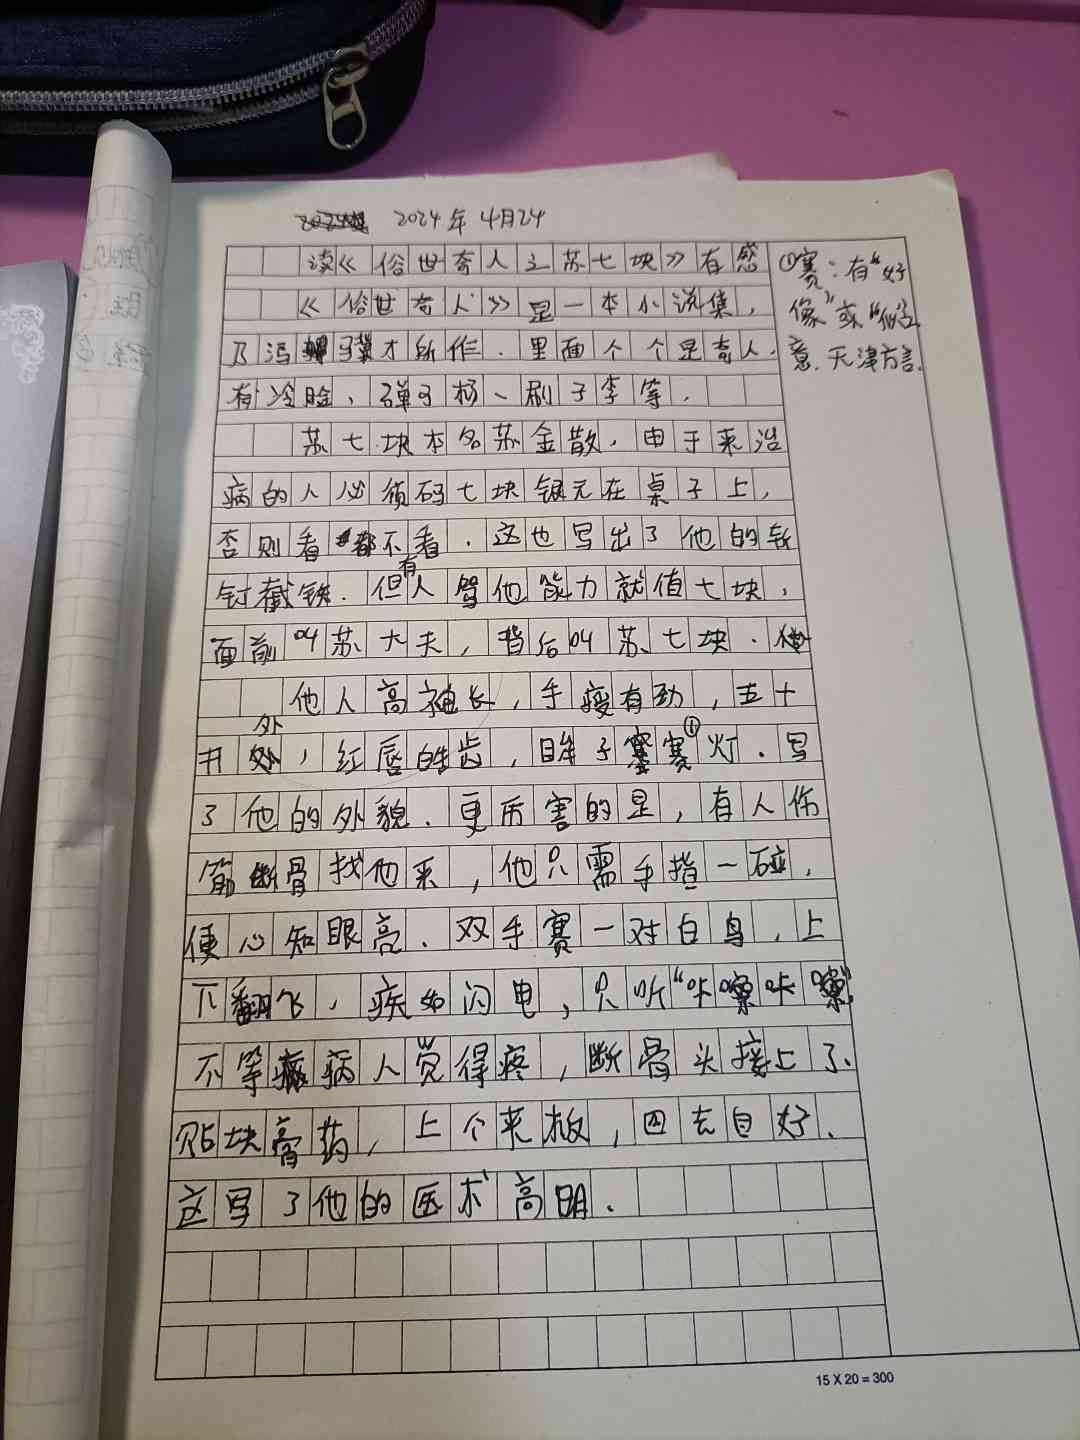 2024年4月24
读《俗世奇人之苏七块》有感
《俗世奇人》是一本小说集，
乃冯骥才所作．里面个个是奇人．
有冷脸、弹子杨、刷子李等．
苏七块本名苏金散，由于来治
病的人必须码七块银元在桌子上，
否则看都不看．这也写出了他的斩
钉截铁．但有人驾他能力就值七块，
面前叫苏大夫，背后叫苏七块．
他人高袖长，手瘦有劲，五十
开外，红唇皓齿，眸子赛①灯．写
了他的外貌．更厉害的是，有人伤
筋断骨找他来，他只需手指一碰，
便心知眼亮．双手赛一对白鸟，上
下翻飞，疾如闪电，只听"咔嚓咔嚓"
不等病人觉得疼，断骨头接上了、
贴块膏药，上个夹板，回去自好．
这写了他的医术高明．
①赛：有"好
像"或"似"
意．天津方言．
15 X 20 = 300